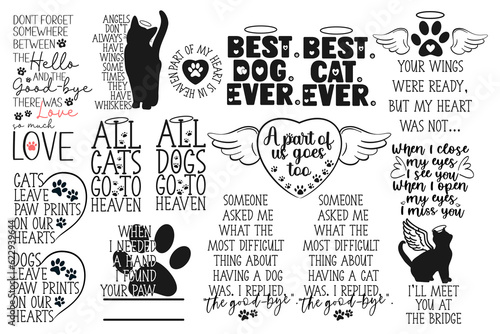 DON'T FORGET
SOMEWHERE
BETWEEN
THE
Hello
AND THE
Good-bye
THERE WAS
Love
so much
LOVE
ANGELS
DON'T
ALWAYS
HAVE
WINGS
SOME
TIMES
THEY
HAVE
WHISKERS
A PART OF MY HEART IS
IN HEAVEN
BEST.
DOG.
EVER.
BEST.
CAT.
EVER.
YOUR WINGS
WERE READY,
BUT MY HEART
WAS NOT...
ALL
CATS
GO TO
HEAVEN
ALL
DOGS
GO TO
HEAVEN
A part of
us goes
too.
When I close
my eyes
I see you
When I open
my eyes
I miss you
CATS
LEAVE
PAW PRINTS
ON OUR
HEARTS
DOGS
LEAVE
PAW PRINTS
ON OUR
HEARTS
WHEN
I NEEDED
A HAND
I FOUND
YOUR PAW
SOMEONE
ASKED ME
WHAT THE
MOST DIFFICULT
THING ABOUT
HAVING A DOG
WAS. I REPLIED,
"the good-bye".
SOMEONE
ASKED ME
WHAT THE
MOST DIFFICULT
THING ABOUT
HAVING A CAT
WAS. I REPLIED,
"the good-bye".
I'LL MEET
YOU AT
THE BRIDGE
Adobe Stock | #622939644